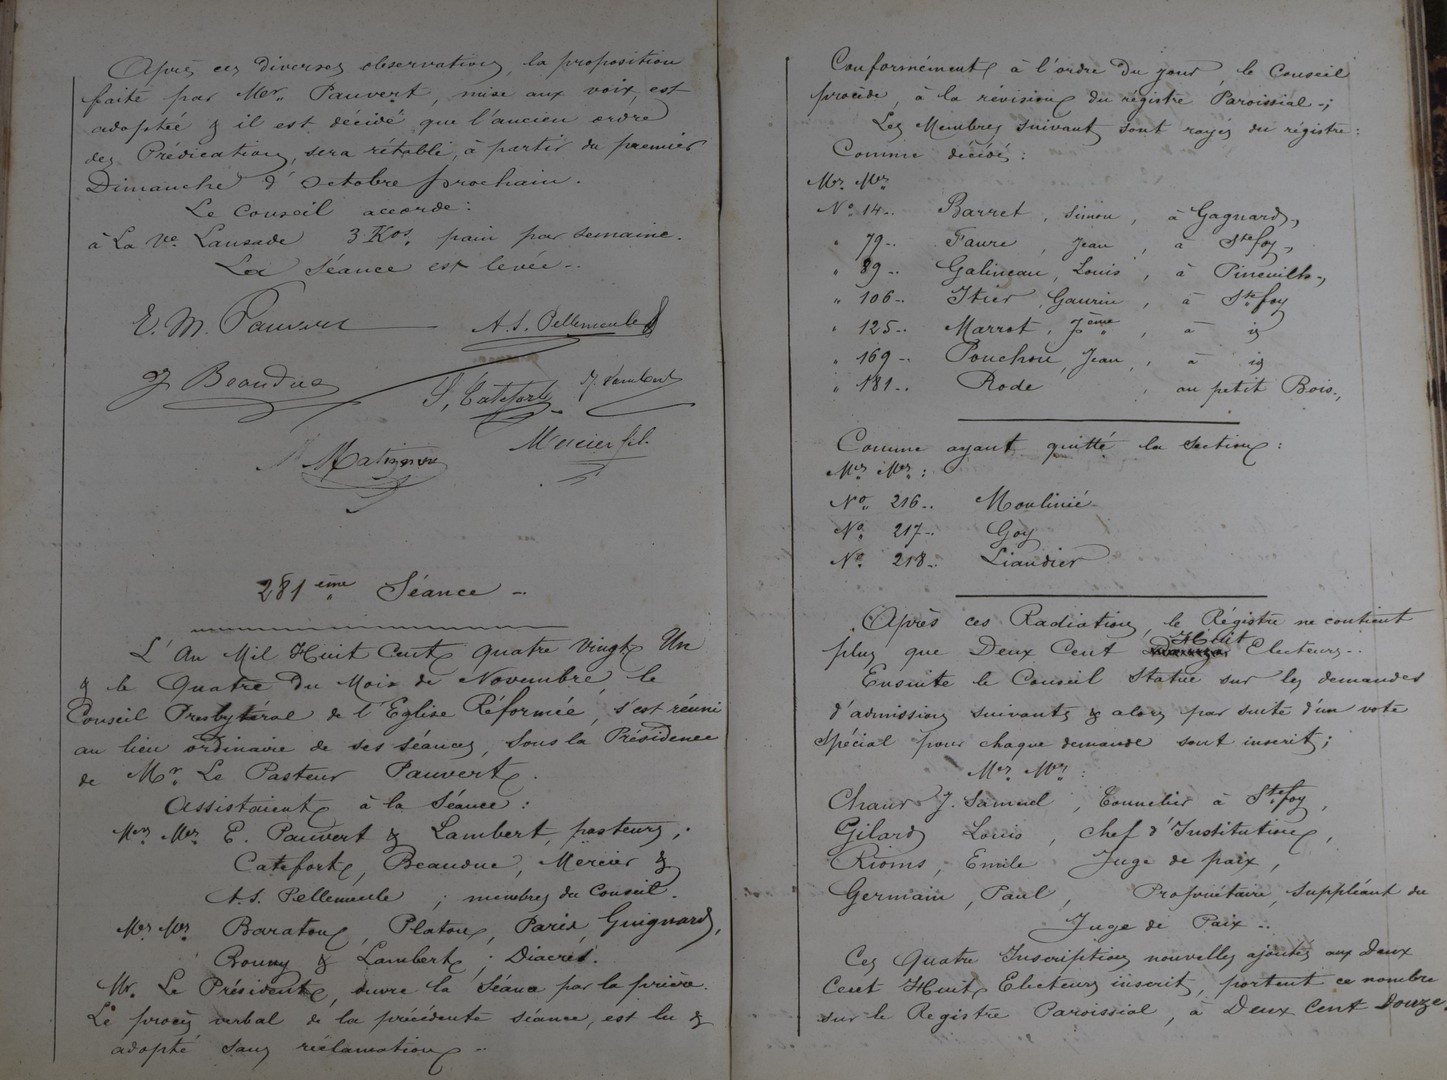 Après ces diverses observations, la proposition
faite par Mr. Pauvert, mise aux voix, est
adoptée & il est décidé que l'ancien ordre
des Prédications, sera rétabli, à partir du premier
Dimanche d'Octobre prochain.
Le Conseil accorde :
à La Vve. Lansade 3 Kos. pain par semaine.
La Séance est levée -.
E. M. Pauvert A. S. Pellemeule
J Beauduc S, Catefort J. Lambert
Matignon Mercier fils
281 ème Séance -.
L'An Mil Huit Cent quatre Vingt Un
& le Quatre du Mois de Novembre, le
Conseil Presbytéral de l'Eglise Réformée, s'est réuni
au lieu ordinaire de ses séances, sous la Présidence
de Mr. Le Pasteur Pauvert.
Assistaient à la Séance :
Mrs. Mrs. E. Pauvert & Lambert, pasteurs ;
Catefort, Beauduc, Mercier &
A. S. Pellemeule ; membres du Conseil.
Mrs. Mrs. Baraton, Platon, Paris Guignard,
Rouny & Lambert ; Diacres.
Mr. Le Président, ouvre la Séance par la prière.
Le procès verbal de la précédente séance, est lu &
adopté sans réclamation -.
Conformément à l'ordre du jour, le Conseil
procède, à la révision du régistre Paroissial -;
Les Membres suivant sont rayés du régistre :
Comme décédés :
Mrs. Mrs.
No. 14 -. Barret, Simon, à Gagnard,
" 79 -. Faure, Jean, à Ste foy,
" 89 -. Galineau, Louis, à Pineuilh,
" 106 -. Itier, Gaurin, à Ste foy
" 125 -. Marrot, Jème, à id
" 169 -. Pouchou, Jean, à id
" 181 -. Rode, au petit Bois.,
Comme ayant quitté la section :
Mrs. Mrs. :
No. 216 -. Moulinié
No. 217 -. Goy
No. 218 -. Liaudier
Après ces Radiations, le Régistre ne contient
plus que Deux Cent Huit Electeurs -.
Ensuite le Conseil Statue sur les demandes
d'admissions suivants & alors par suite d'un vote
spécial pour chaque demande sont inscrit ;
Mrs. Mrs. :
Chaur J. Samuel, Tonnelier à Ste foy,
Gilard Louis, chef d'Institution,
Rioms, Emile Juge de paix,
Germain, Paul, Propriétaire, suppléant du
Juge de Paix -.
Ces Quatre Inscriptions nouvelles ajoutés aux Deux
Cent Huit Electeurs inscrit, portent ce nombre
sur le Registre Paroissial, à Deux Cent Douze.